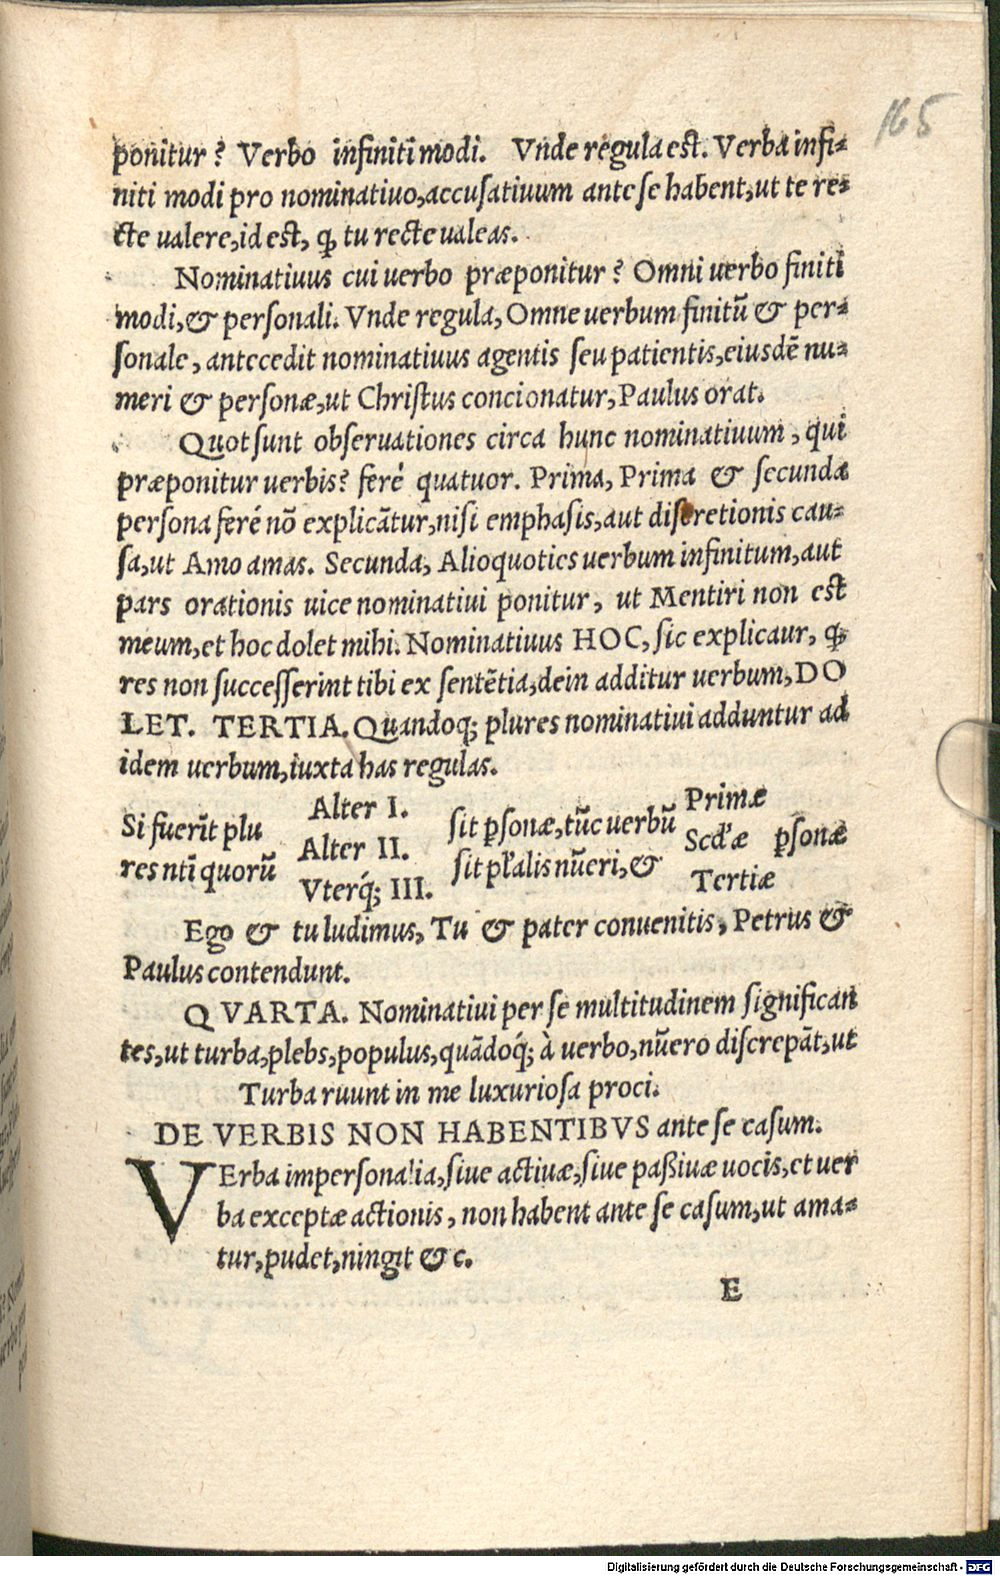 165
ponitur? Verbo infiniti modi. Vnde regula est. Verba infi-
niti modi pro nominatiuo, accusatiuum ante se habent, ut te re-
cte ualere, id est, ꝙ tu recte ualeas.
Nominatiuus cui uerbo præponitur? Omni uerbo finiti
modi, & personali. Vnde regula, Omne uerbum finitū & per-
sonale, antecedit nominatiuus agentis seu patientis, eiusdē nu-
meri & personæ, ut Christus concionatur, Paulus orat.
Quot sunt obseruationes circa hunc nominatiuum, qui
præponitur uerbis? ferè quatuor. Prima, Prima & secunda
persona ferè nō explicātur, nisi emphasis, aut discretionis cau-
sa, ut Amo amas. Secunda, Alioquoties uerbum infinitum, aut
pars orationis uice nominatiui ponitur, ut Mentiri non est
meum, et hoc dolet mihi. Nominatiuus HOC, sic explicaur, ꝙ
res non successerint tibi ex sentētia, dein additur uerbum, DO
LET. TERTIA. Quandoq; plures nominatiui adduntur ad
idem uerbum, iuxta has regulas.
Si fuerīt plu
res nti̅ quorū
Alter I.
Alter II.
Vterq́; III.
sit ꝑsonæ, tūc uerbū
sit pl̕alis nūeri, &
Primæ
Scd̕æ ꝑsonæ
Tertiæ
Ego & tu ludimus, Tu & pater conuenitis, Petrus &
Paulus contendunt.
QVARTA. Nominatiui per se multitudinem significan
tes, ut turba, plebs, populus, quādoq́; à uerbo, nūero discrepāt, ut
Turba ruunt in me luxuriosa proci.
DE VERBIS NON HABENTIBVS ante se casum.
VErba impersonalia, siue actiuæ, siue paßiuæ uocis, et uer
ba exceptæ actionis, non habent ante se casum, ut ama-
tur, pudet, ningit &c.
E
Digitalisierung gefördert durch die Deutsche Forschungsgemeinschaft - DFG